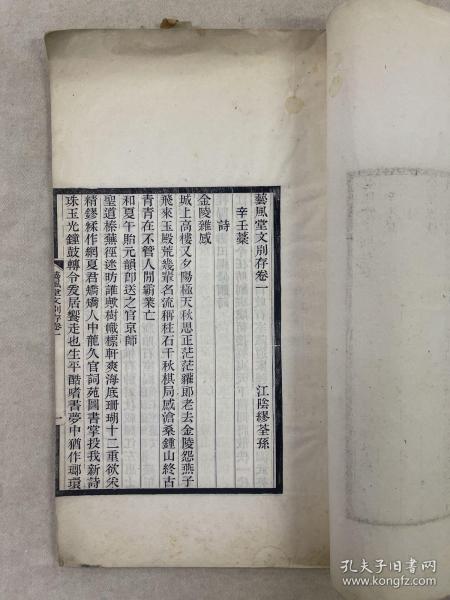 藝風堂文別存卷一
江陰繆荃孫
辛壬藁
詩
金陵雜感
城上高樓又夕陽極天秋思正茫茫羅郎老去金陵怨燕子
飛來玉殿荒幾叢名流稱柱石千秋棋局感滄桑鍾山終古
青青在不管人閒霸業亡
和夏午胎元韻卽送之官京師
聖道榛蕪徑迷昉誰歟樹幟標軒爽海底珊瑚十二重欲采
精鏐絲作網夏君矯矯人中龍久官詞苑圖書掌投我新詩
珠玉光鐘鼓轉令爰居饗走也生平酷嗜書夢中猶作瑯環
藝風堂文別存卷一
一
孔夫子旧书网
www.kongfz.com